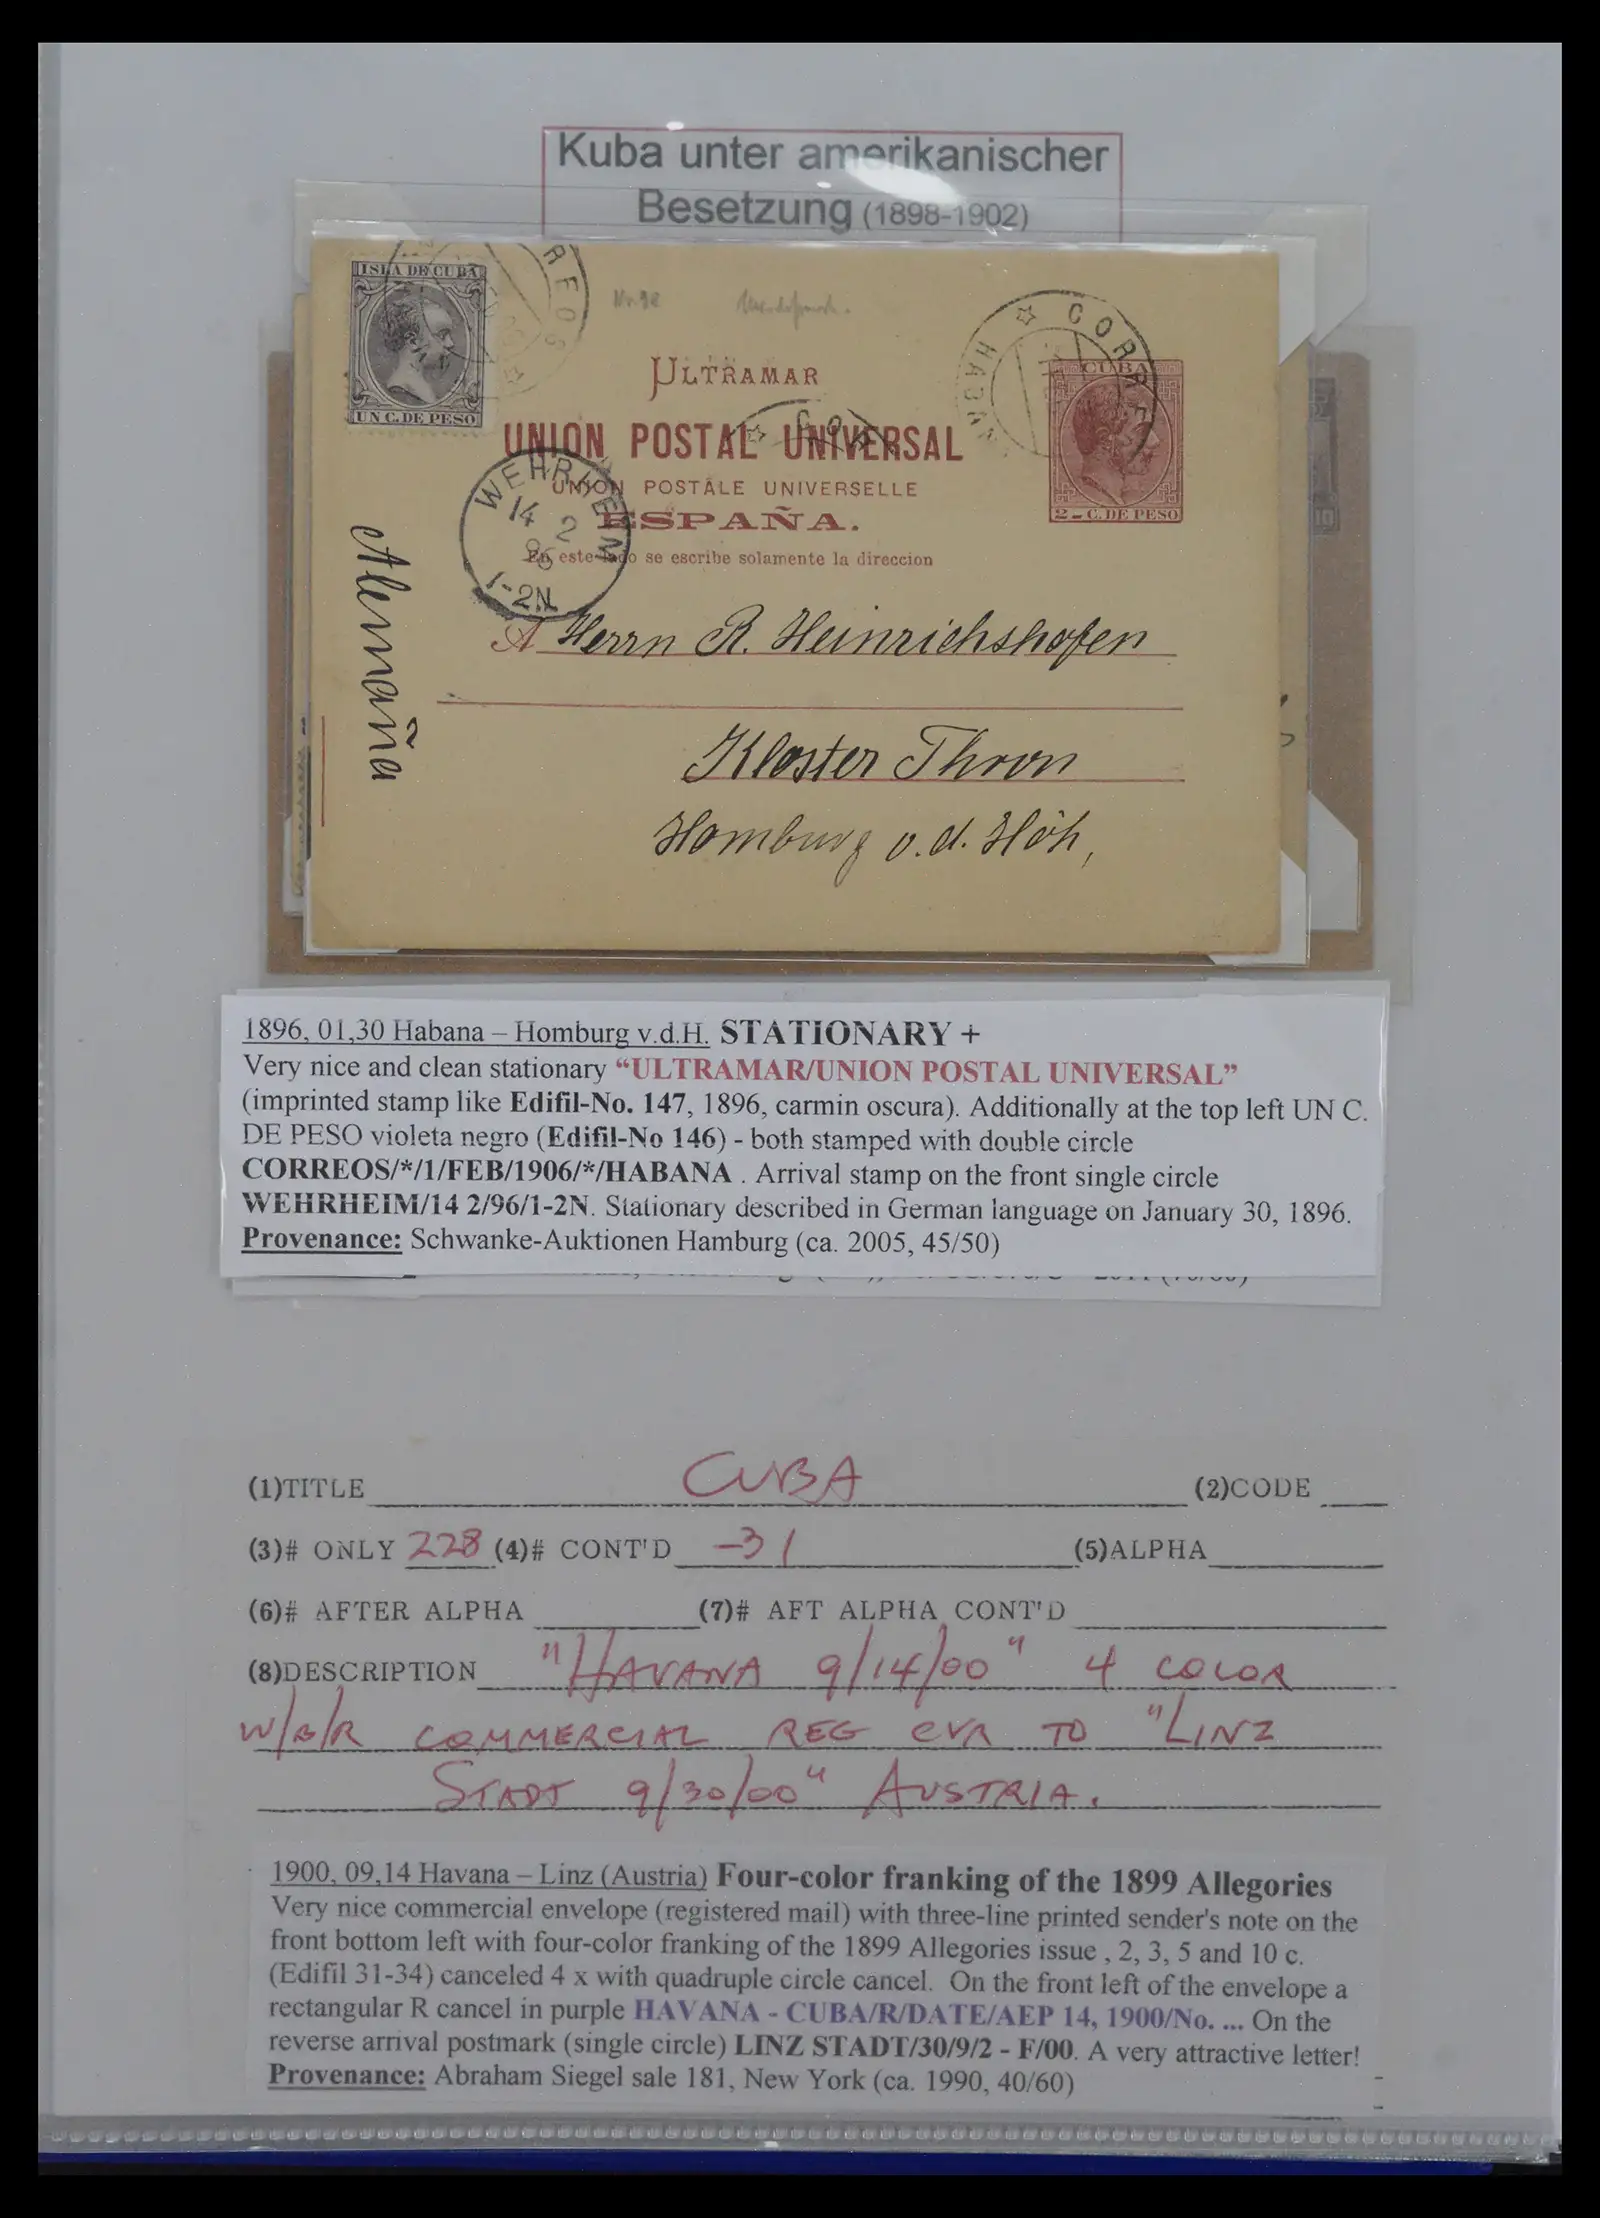 Kuba unter amerikanischer
Besetzung (1898-1902)
ISLA DE CUBA
UN C. DE PESO
REOS
No. 92
ULTRAMAR
UNION POSTAL UNIVERSAL
UNION POSTALE UNIVERSELLE
ESPAÑA.
En este lado se escribe solamente la direccion
CORRE
HABAN
CUBA
2-C. DE PESO
COR
WEHRHEIM
14 2
96
1-2N
Alemaña
A Herrn R. Heinrichshofen
Kloster Thron
Homburg v. d. Höh,
10
1896, 01,30 Habana – Homburg v.d.H. STATIONARY +
Very nice and clean stationary “ULTRAMAR/UNION POSTAL UNIVERSAL”
(imprinted stamp like Edifil-No. 147, 1896, carmin oscura). Additionally at the top left UN C.
DE PESO violeta negro (Edifil-No 146) - both stamped with double circle
CORREOS/*/1/FEB/1906/*/HABANA . Arrival stamp on the front single circle
WEHRHEIM/14 2/96/1-2N. Stationary described in German language on January 30, 1896.
Provenance: Schwanke-Auktionen Hamburg (ca. 2005, 45/50)
(1)TITLE CUBA (2)CODE
(3)# ONLY 228 (4)# CONT'D -31 (5)ALPHA
(6)# AFTER ALPHA (7)# AFT ALPHA CONT'D
(8)DESCRIPTION "HAVANA 9/14/00" 4 COLOR
W/B/R COMMERCIAL REG CVR TO "LINZ
STADT 9/30/00" AUSTRIA.
1900, 09,14 Havana – Linz (Austria) Four-color franking of the 1899 Allegories
Very nice commercial envelope (registered mail) with three-line printed sender's note on the
front bottom left with four-color franking of the 1899 Allegories issue , 2, 3, 5 and 10 c.
(Edifil 31-34) canceled 4 x with quadruple circle cancel. On the front left of the envelope a
rectangular R cancel in purple HAVANA - CUBA/R/DATE/AEP 14, 1900/No. ... On the
reverse arrival postmark (single circle) LINZ STADT/30/9/2 - F/00. A very attractive letter!
Provenance: Abraham Siegel sale 181, New York (ca. 1990, 40/60)